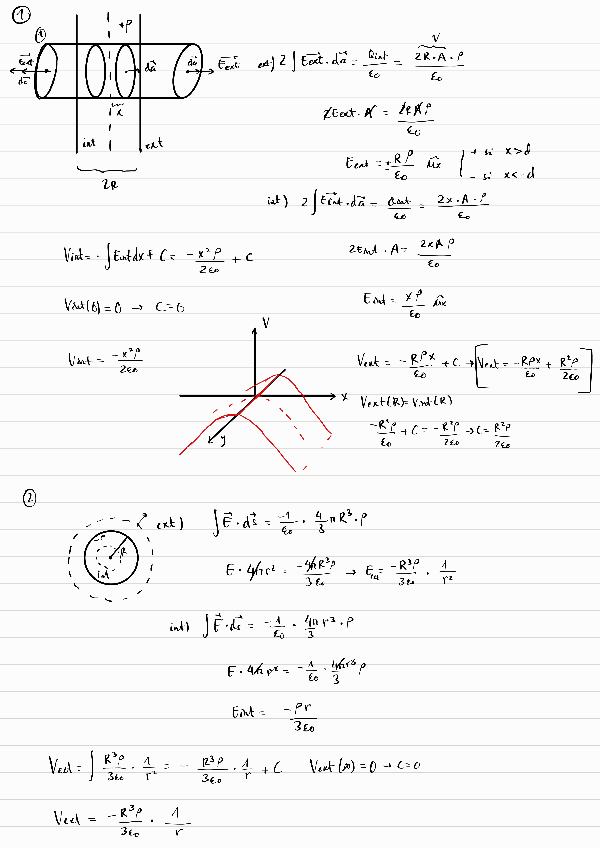 ①
+ρ
① E⃗ext da⃗ da⃗ da⃗ E⃗ext
x
int ext
2R
ext) 2 ∫ E⃗ext · da⃗ = Qint/ε₀ = 2R · A · ρ/ε₀
V
2Eext · A = 2RAρ/ε₀
Eext = ± Rρ/ε₀ u⃗x { + si x > d
− si x < -d
int) 2 ∫ E⃗int · da⃗ = Qint/ε₀ = 2x · A · ρ/ε₀
Vint = - ∫ Eint dx + C = -x²ρ/2ε₀ + C
2Eint · A = 2xAρ/ε₀
Vint(0) = 0 → C = 0
Eint = xρ/ε₀ u⃗x
Vint = -x²ρ/2ε₀
V
x
y
Vext = -Rρx/ε₀ + C → [Vext = -Rρx/ε₀ + R²ρ/2ε₀]
Vext(R) = Vint(R)
-R²ρ/ε₀ + C = -R²ρ/2ε₀ → C = R²ρ/2ε₀
②
-ρ
R
int
ext) ∫ E⃗ · ds⃗ = -1/ε₀ · 4/3 π R³ · ρ
E · 4πr² = -4πR³ρ/3ε₀ → Eext = -R³ρ/3ε₀ · 1/r²
int) ∫ E⃗ · ds⃗ = -1/ε₀ · 4π/3 r³ · ρ
E · 4πr² = -1/ε₀ · 4πr³/3 ρ
Eint = -ρr/3ε₀
Vext = ∫ R³ρ/3ε₀ · 1/r² = - R³ρ/3ε₀ · 1/r + C Vext(∞) = 0 → C = 0
Vext = -R³ρ/3ε₀ · 1/r